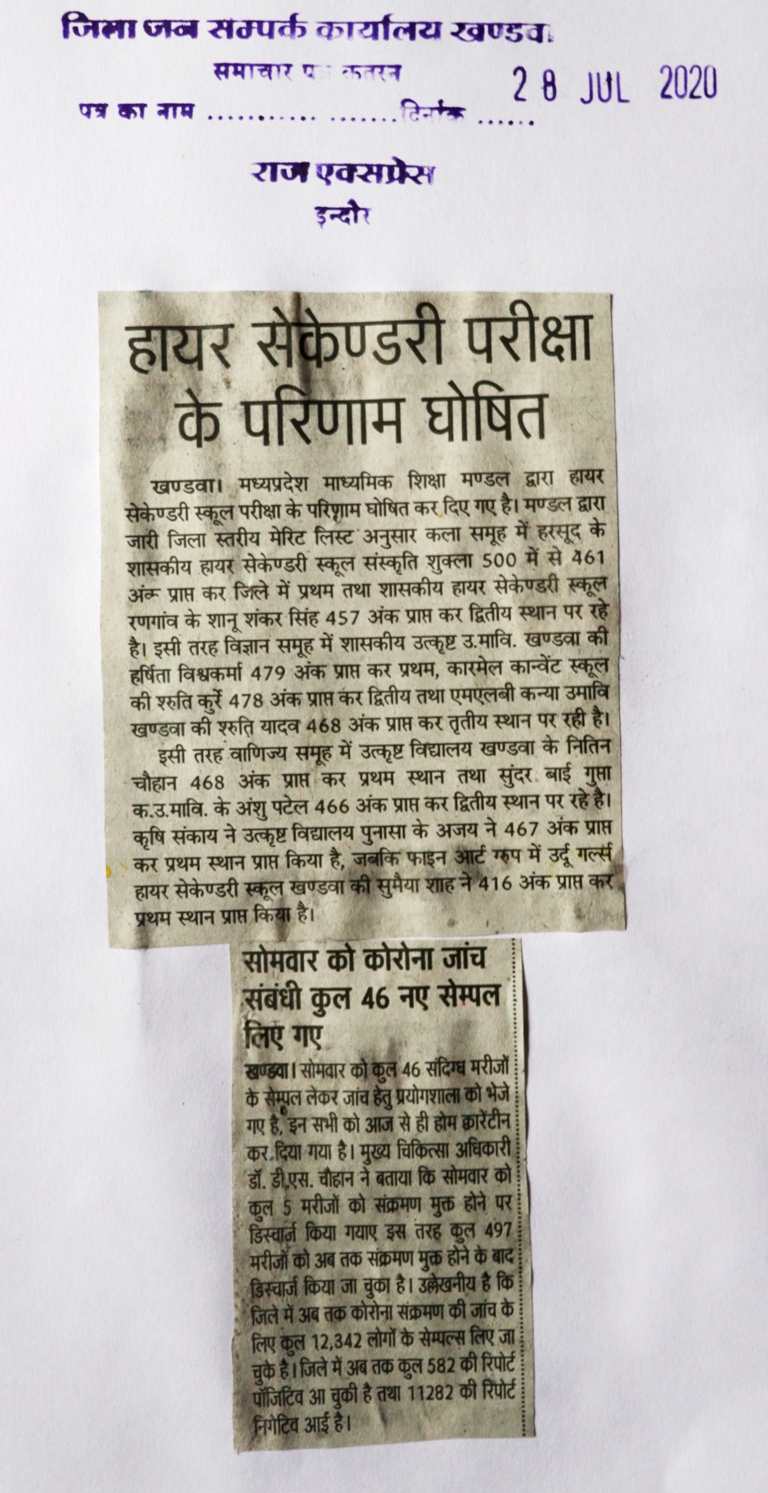 जिला जन सम्पर्क कार्यालय खण्डवा
समाचार पत्र कतरन
28 JUL 2020
पत्र का नाम .................... दिनांक ......
राज एक्सप्रेस
इन्दौर
हायर सेकेण्डरी परीक्षा
के परिणाम घोषित
खण्डवा। मध्यप्रदेश माध्यमिक शिक्षा मण्डल द्वारा हायर
सेकेण्डरी स्कूल परीक्षा के परिणाम घोषित कर दिए गए है। मण्डल द्वारा
जारी जिला स्तरीय मेरिट लिस्ट अनुसार कला समूह में हरसूद के
शासकीय हायर सेकेण्डरी स्कूल संस्कृति शुक्ला 500 में से 461
अंक प्राप्त कर जिले में प्रथम तथा शासकीय हायर सेकेण्डरी स्कूल
रणगांव के शानू शंकर सिंह 457 अंक प्राप्त कर द्वितीय स्थान पर रहे
है। इसी तरह विज्ञान समूह में शासकीय उत्कृष्ट उ.मावि. खण्डवा की
हर्षिता विश्वकर्मा 479 अंक प्राप्त कर प्रथम, कारमेल कान्वेंट स्कूल
की श्रुति कुर्रे 478 अंक प्राप्त कर द्वितीय तथा एमएलबी कन्या उमावि
खण्डवा की श्रुति यादव 468 अंक प्राप्त कर तृतीय स्थान पर रही है।
इसी तरह वाणिज्य समूह में उत्कृष्ट विद्यालय खण्डवा के नितिन
चौहान 468 अंक प्राप्त कर प्रथम स्थान तथा सुंदर बाई गुप्ता
क.उ.मावि. के अंशु पटेल 466 अंक प्राप्त कर द्वितीय स्थान पर रहे है।
कृषि संकाय ने उत्कृष्ट विद्यालय पुनासा के अजय ने 467 अंक प्राप्त
कर प्रथम स्थान प्राप्त किया है, जबकि फाइन आर्ट ग्रुप में उर्दू गर्ल्स
हायर सेकेण्डरी स्कूल खण्डवा की सुमैया शाह ने 416 अंक प्राप्त कर
प्रथम स्थान प्राप्त किया है।
सोमवार को कोरोना जांच
संबंधी कुल 46 नए सेम्पल
लिए गए
खण्डवा। सोमवार को कुल 46 संदिग्ध मरीजों
के सेम्पल लेकर जांच हेतु प्रयोगशाला को भेजे
गए है, इन सभी को आज से ही होम क्वारेंटीन
कर दिया गया है। मुख्य चिकित्सा अधिकारी
डॉ. डी.एस. चौहान ने बताया कि सोमवार को
कुल 5 मरीजों को संक्रमण मुक्त होने पर
डिस्चार्ज किया गयाए इस तरह कुल 497
मरीजों को अब तक संक्रमण मुक्त होने के बाद
डिस्चार्ज किया जा चुका है। उल्लेखनीय है कि
जिले में अब तक कोरोना संक्रमण की जांच के
लिए कुल 12,342 लोगों के सेम्पल्स लिए जा
चुके है। जिले में अब तक कुल 582 की रिपोर्ट
पॉजिटिव आ चुकी है तथा 11282 की रिपोर्ट
निगेटिव आई है।